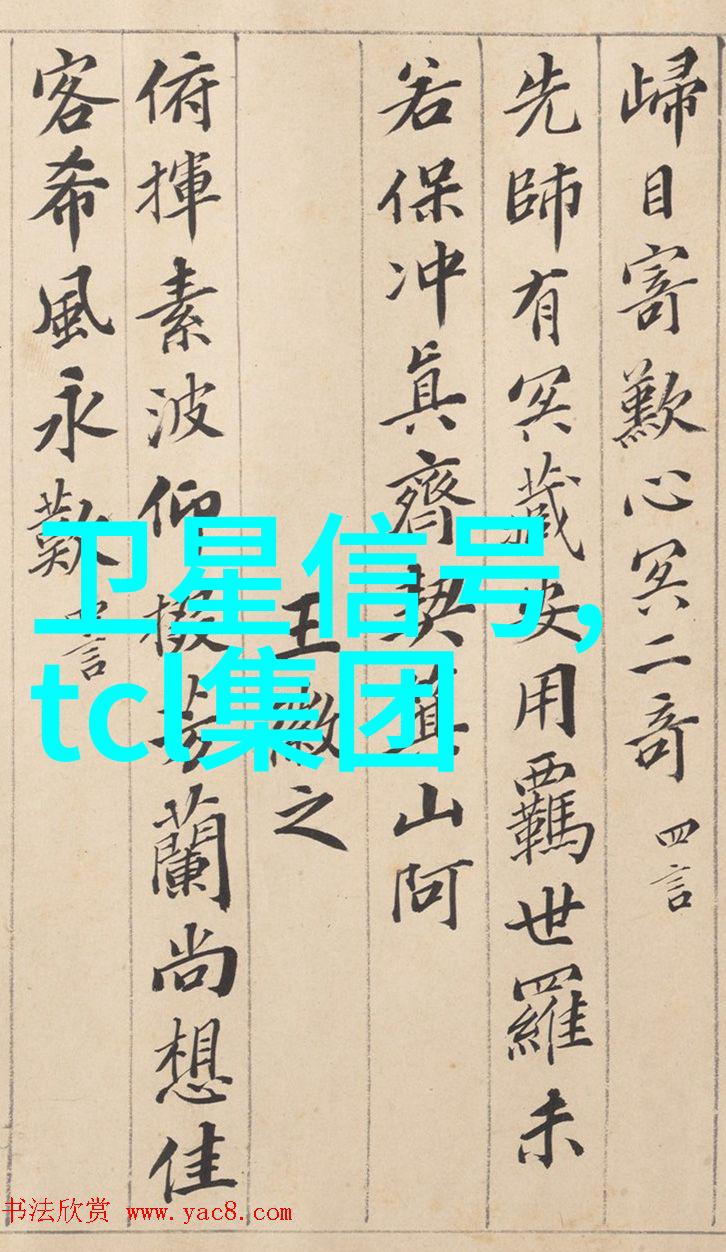 歸目寄歎心冥二奇 四言
先師有冥藏安用羈世羅未
若保冲眞齊契箕山阿
王徽之
俯揮素波仰掇芳蘭尚想佳
客希風永歎 四言
卫星信号,
tcl集团
书法欣赏 www.yac8.com